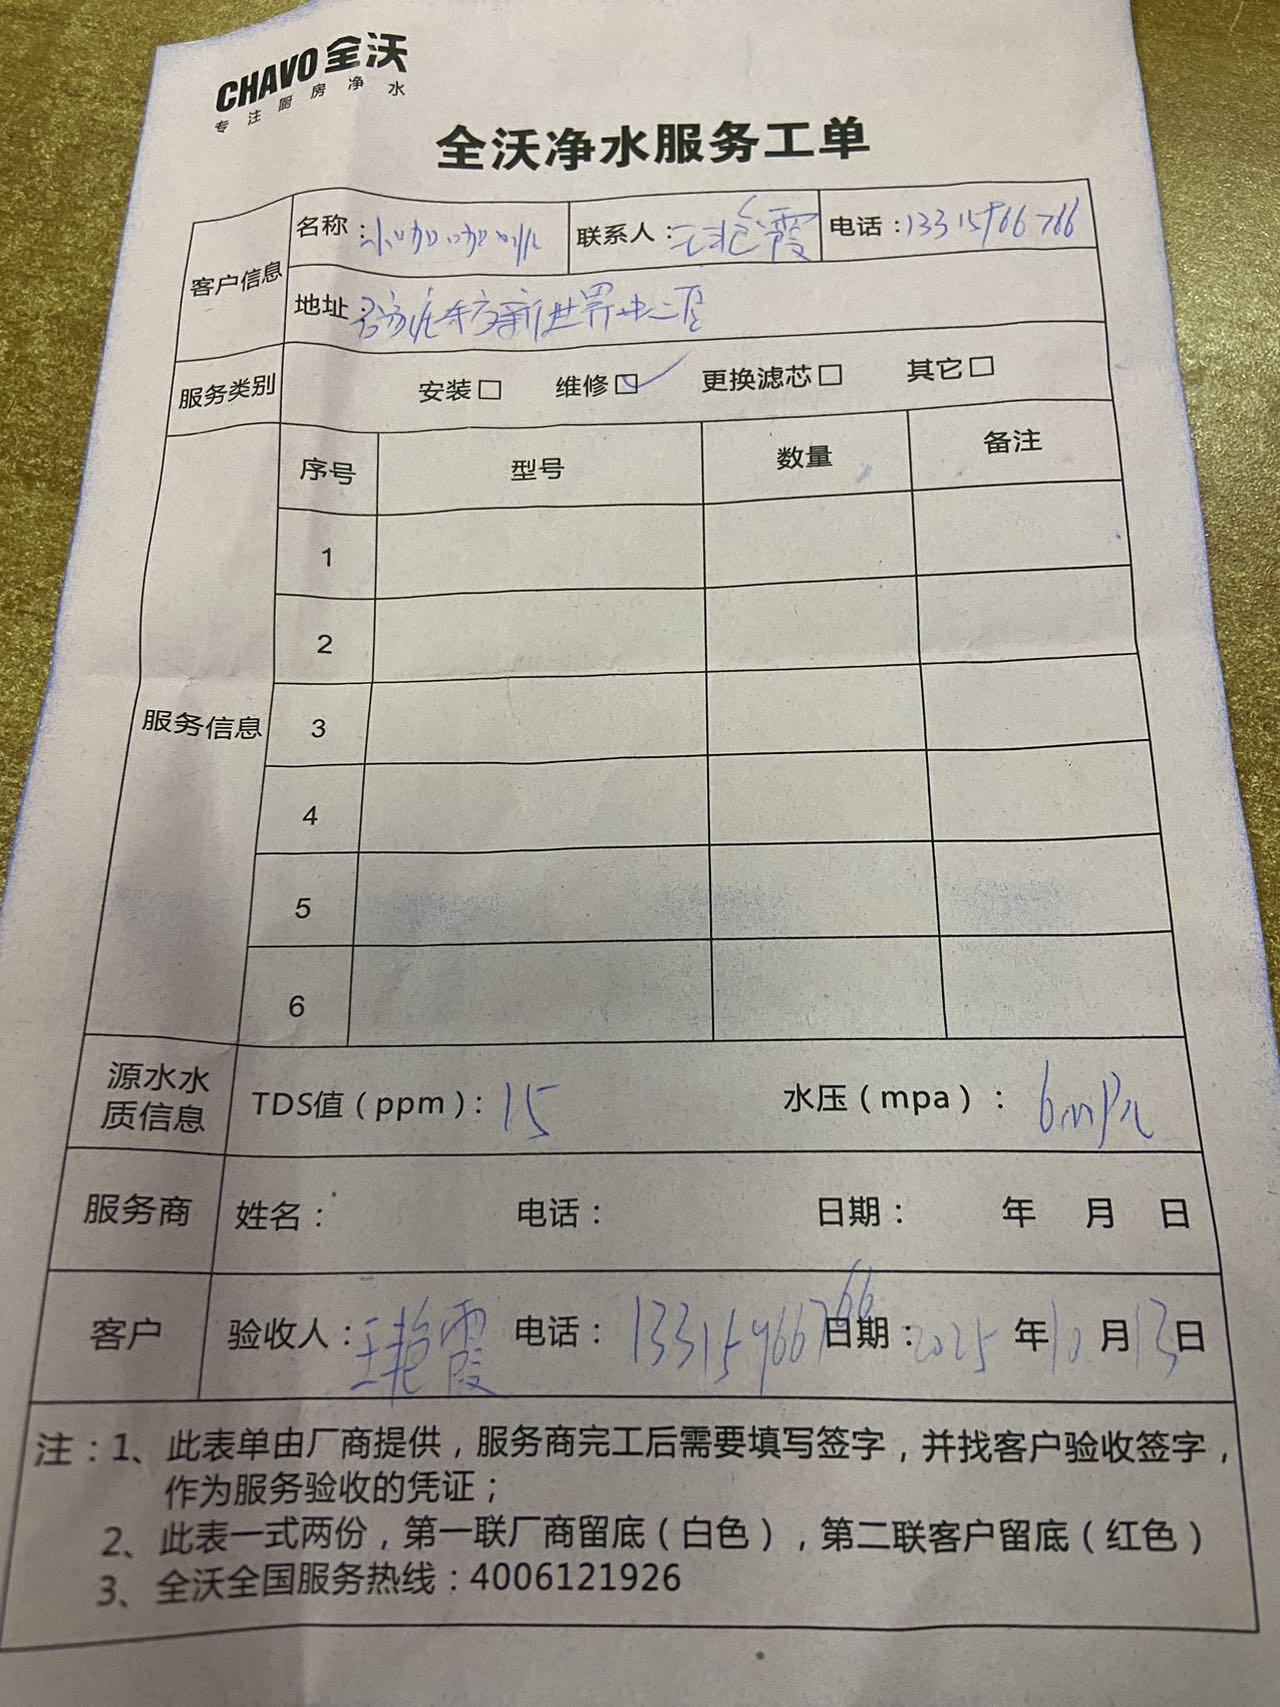 CHAVO 全沃
专注厨房净水
全沃净水服务工单
客户信息
名称：
联系人：王艳霞
电话：13315966766
地址：东方新世界
服务类别
安装□ 维修☑ 更换滤芯□ 其它□
服务信息
序号 型号 数量 备注
1
2
3
4
5
6
源水水质信息
TDS值（ppm）：15 水压（mpa）：6mpa
服务商
姓名： 电话： 日期： 年 月 日
客户
验收人：王艳霞 电话：13315966766 日期：2025年10月13日
注：1、此表单由厂商提供，服务商完工后需要填写签字，并找客户验收签字，
作为服务验收的凭证；
2、此表一式两份，第一联厂商留底（白色），第二联客户留底（红色）
3、全沃全国服务热线：4006121926